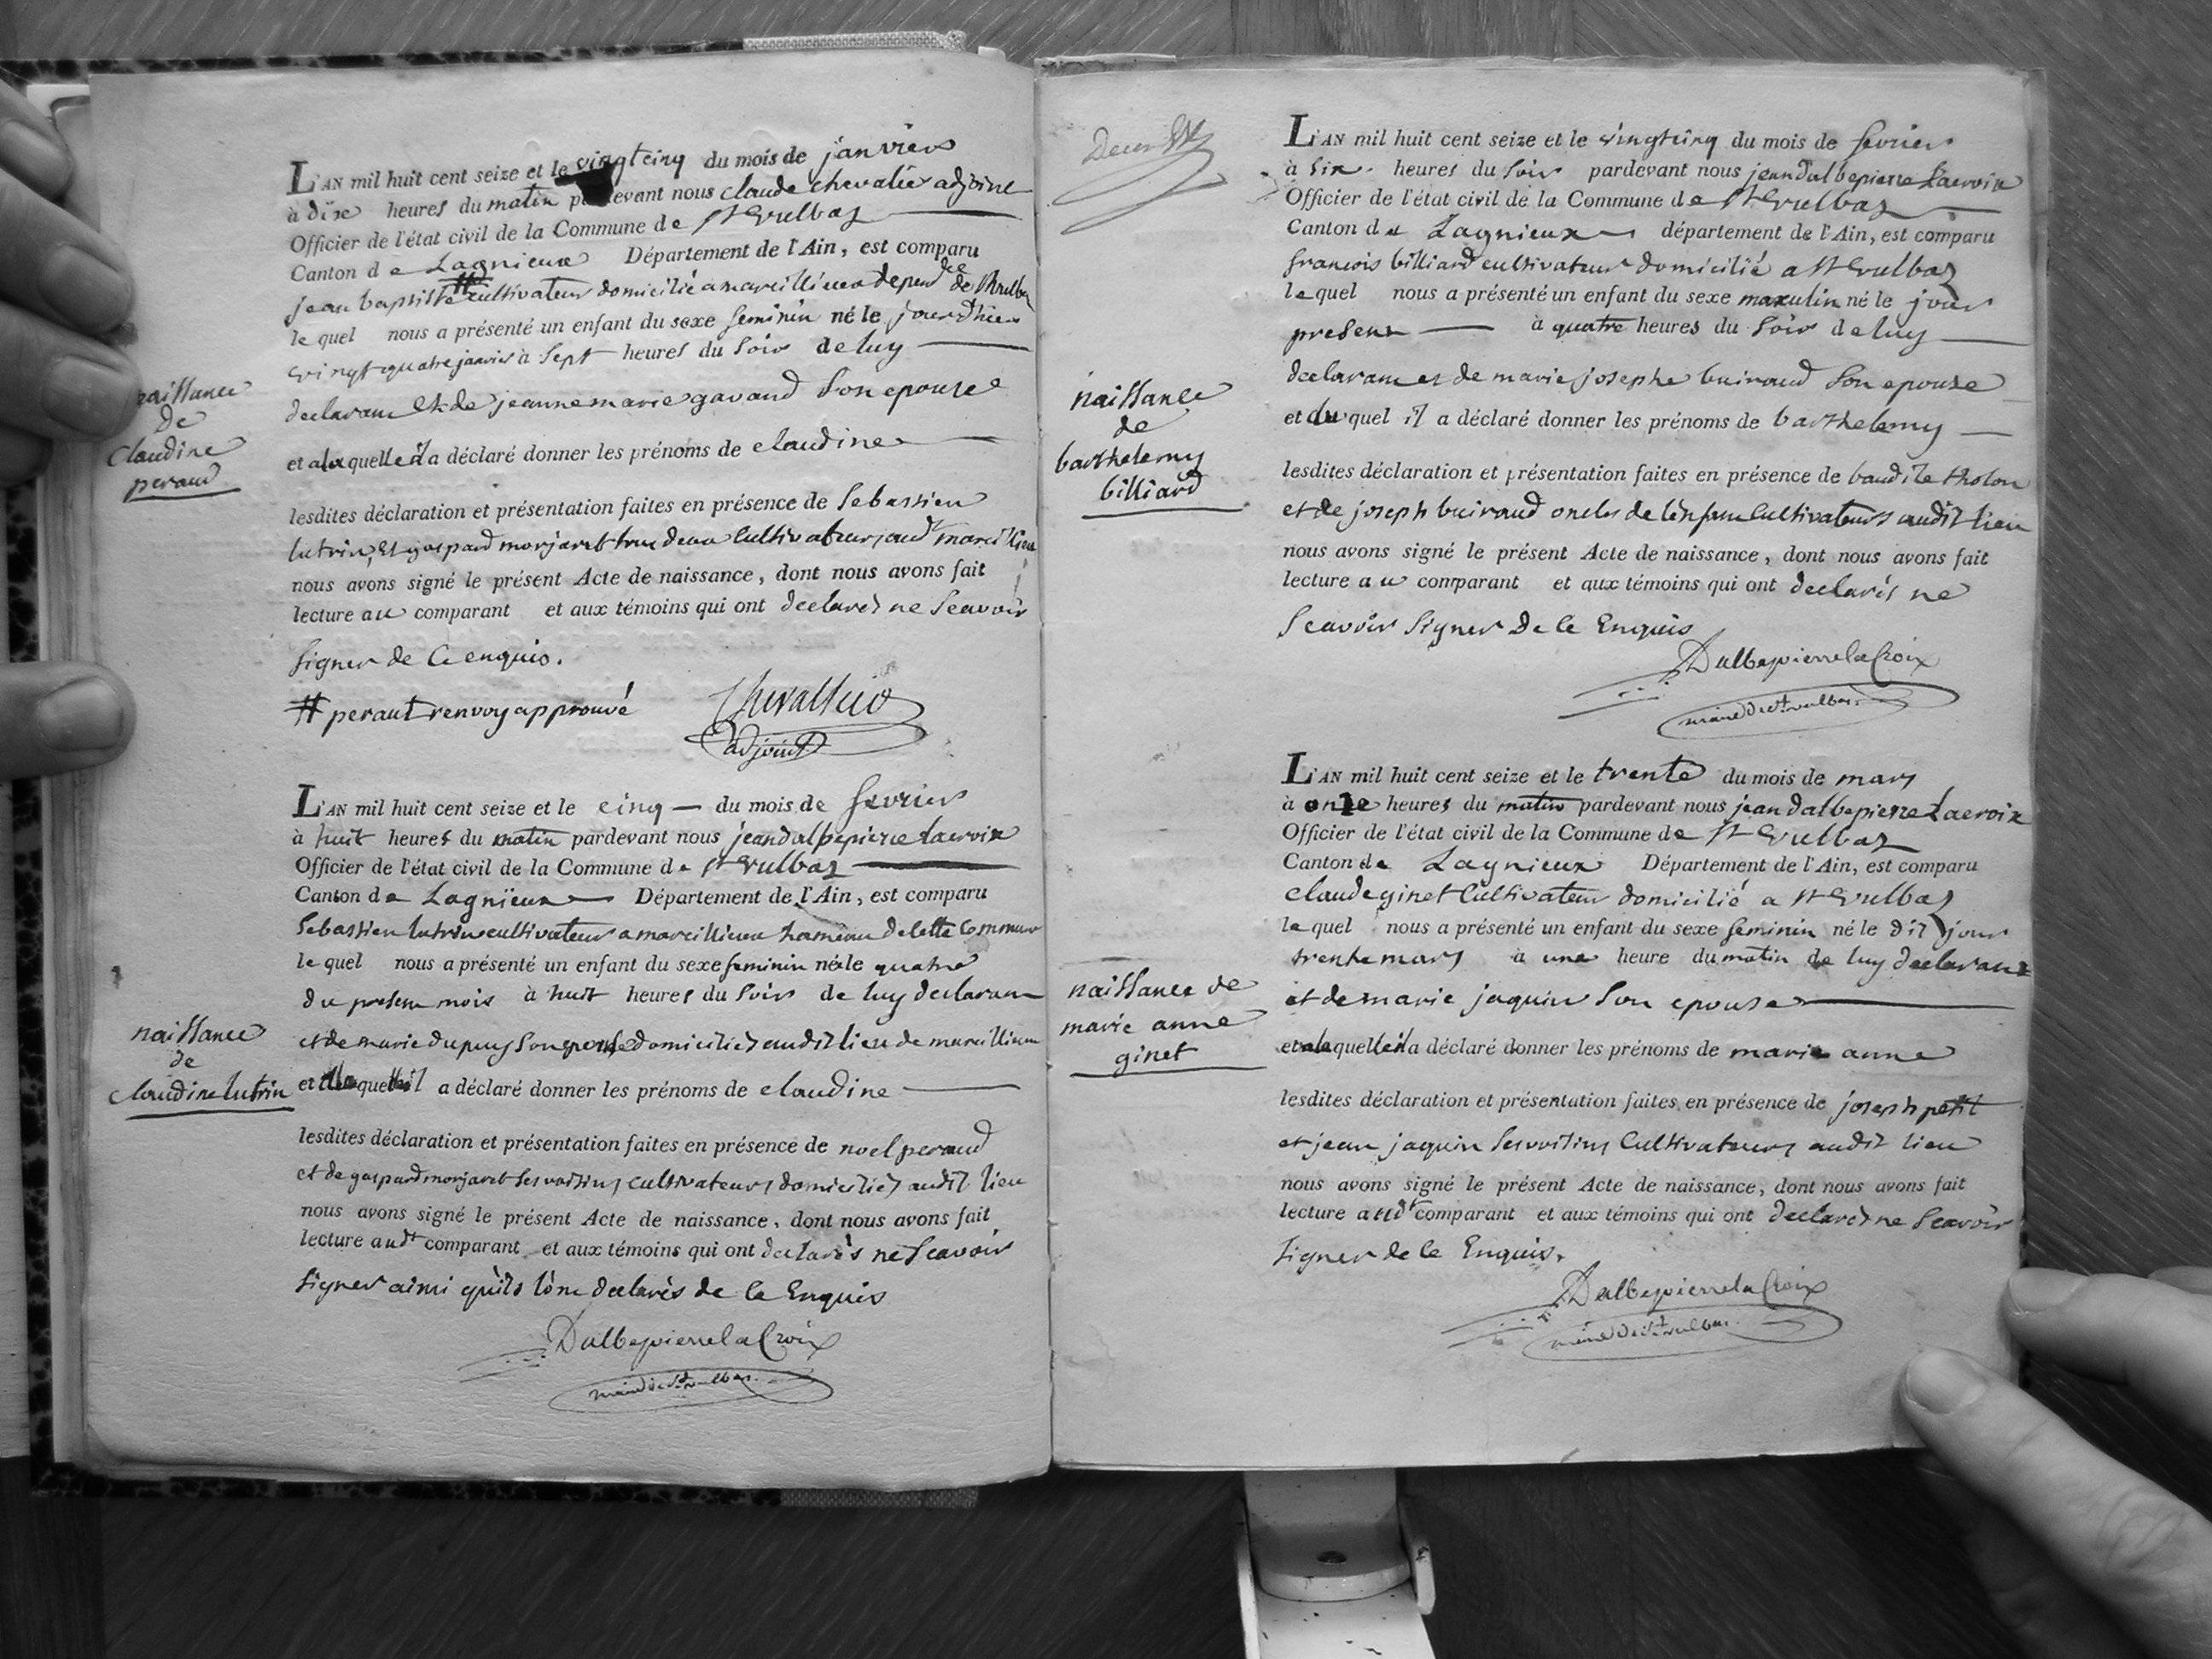 L'AN mil huit cent seize et le vingtcinq du mois de janvier
à dixe heures du matin pardevant nous claude chevalier adjoint
Officier de l'état civil de la Commune de St Vulbaz
Canton de Lagnieux Département de l'Ain, est comparu
jean baptiste # cultivateur domicilié a marcillieux depend ce de St Vulbaz
lequel nous a présenté un enfant du sexe feminin né le jour d'hier
vingt quatre janvier à sept heures du soir de luy
declarant et de jeanne marie gavand son epouse
et a laquelle il a déclaré donner les prénoms de claudine
lesdites déclaration et présentation faites en présence de Sebastien
lutrin, et gaspard morjaret tous deux cultivateurs aud. marcillieu
nous avons signé le présent Acte de naissance, dont nous avons fait
lecture au comparant et aux témoins qui ont declarés ne scavoir
signer de ce enquis.
# peraut renvoy approuvé
Chevallier
adjoint
naissance
de
Claudine
peraud
L'AN mil huit cent seize et le cinq du mois de fevrier
à huit heures du matin pardevant nous jean dalbepierre Lacroix
Officier de l'état civil de la Commune de St Vulbaz
Canton de Lagnieux Département de l'Ain, est comparu
Sebastien lutrin cultivateur a marcillieux hameau de cette commune
lequel nous a présenté un enfant du sexe feminin née le quatre
du present mois à huit heures du soir de luy declarant
et de marie dupuy son epouse domiciliés audit lieu de marcillieux
et a laquelle il a déclaré donner les prénoms de claudine
lesdites déclaration et présentation faites en présence de noel peraud
et de gaspard morjaret ses voisins cultivateurs domiciliés audit lieu
nous avons signé le présent Acte de naissance, dont nous avons fait
lecture audt comparant et aux témoins qui ont declarés ne scavoir
signer ainsi qu'ils l'ont declarés de ce Enquis
Dalbepierre la Croix
maire de St vulbas
naissance
de
Claudine lutrin
L'AN mil huit cent seize et le vingtcinq du mois de fevrier
à six heures du soir pardevant nous jean dalbepierre Lacroix
Officier de l'état civil de la Commune de St Vulbaz
Canton de Lagnieux département de l'Ain, est comparu
francois billiard cultivateur domicilié a St Vulbaz
lequel nous a présenté un enfant du sexe masculin né le jour
present à quatre heures du soir de luy
declarant et de marie josephe buiraud son epouse
et du quel il a déclaré donner les prénoms de barthelemy
lesdites déclaration et présentation faites en présence de baudile tholon
et de joseph buiraud oncles de l'enfant Cultivateurs audit lieu
nous avons signé le présent Acte de naissance, dont nous avons fait
lecture au comparant et aux témoins qui ont declarés ne
scavoir signer de ce Enquis
Dalbepierre la Croix
maire de St vulbas
naissance
de
barthelemy
billiard
L'AN mil huit cent seize et le trente du mois de mars
à onze heures du matin pardevant nous jean dalbepierre Lacroix
Officier de l'état civil de la Commune de St Vulbaz
Canton de Lagnieux Département de l'Ain, est comparu
claude ginet Cultivateur domicilié a St Vulbaz
lequel nous a présenté un enfant du sexe feminin né le dit jour
trente mars à une heure du matin de luy declarant
et de marie jaquin son epouse
et a laquelle il a déclaré donner les prénoms de marie anne
lesdites déclaration et présentation faites en présence de joseph petit
et jean jaquin ses voisins Cultivateurs audit lieu
nous avons signé le présent Acte de naissance, dont nous avons fait
lecture audt comparant et aux témoins qui ont declarés ne scavoir
signer de ce Enquis.
Dalbepierre la Croix
maire de St vulbas
naissance de
marie anne
ginet